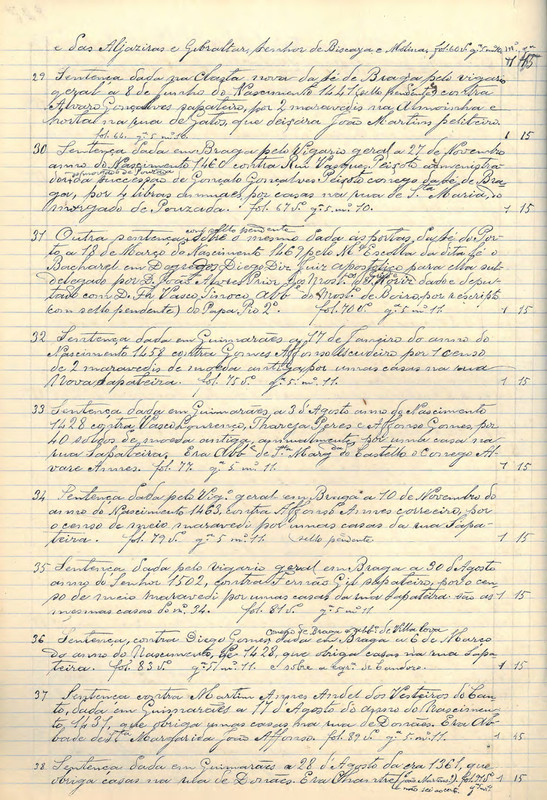 e das Aljaziras e Gibraltar, Senhor de Biscaya e Molina. fol. 60 vº gª 5 mº 10
29 Sentença dada na Claustra nova da Sé de Braga pelo vigario
geral a 8 de Junho do Nascimento 1441 (sello pendente) contra
Alvaro Gonçalves sapateiro, por 2 maravedis na Almoinha e
portal na rua de Gatos, que deixeira João Martins peliteiro.
fol. 64. gª 5 mº 10. 1 15
30 Sentença dada em Braga pelo Vigario geral a 27 de Novembro
anno do Nascimento 1460 contra Rui Vasques Peixoto administra
dor da successão de Gonçalo Gonçalves Peixoto conego da Sé de Bra-
ga, por 4 libras annuaes por casas na rua de Sta Maria, do
morgado de Pouzada. fol. 67 vº gª 5 mº 10. 1 15
31 Outra sentença, com sello pendente sobre o mesmo dada ás portas da Sé do Por-
to a 18 de Março do Nascimento 1469 pelo Me Escolla da dita Sé o
Bacharel em Diego Diz Juiz apostolico para ella sub
delegado por D. João Prior do Mostº de depu-
tado com D. Fr. Vasco Abbe do Mostº de por rescripto
com sello pendente) do Papa Pio 2º. fol. 70 vº gª 5 mº 11. 1 15
32 Sentença dada em Guimarães a 17 de Janeiro do anno do
Nascimento 1458 contra Gomes Affonso Escudeiro por 1 censo
de 2 maravedis de moeda antiga por umas casas na rua
Nova Sapateira. fol. 75 vº gª 5 mº 11. 1 15
33 Sentença dada em Guimarães a 3 d'Agosto anno do Nascimento
1428 contra Vasco Lourenço, Thareja Peres e Affonso Gomes, por
40 soldos de moeda antiga, annualmente, por uma casa na
rua Sapateira. Era Abbe de Sta Margª do Castello o Conego Al-
varo Annes. fol. 77. gª 5 mº 11. 1 15
34 Sentença dada pelo Vigº geral em Braga a 10 de Novembro do
anno do Nascimento 1463, contra Affonso Annes correeiro, por
o censo de meio maravedi por umas casas da rua Sapa-
teira. fol. 79 vº gª 5 mº 11. sello pendente 1 15
35 Sentença dada pelo vigario geral em Braga a 30 d'Agosto
anno do Senhor 1502, contra Fernão Giz sapateiro, por o cen-
so de meio maravedi por umas casas da rua Sapateira. são as
mesmas casas do nº 34. fol. 81 vº gª 5 mº 11 1 15
36 Sentença, contra Diego Gomes, conego de Braga e Abbe de Villa Cova dada em Braga a 6 de Março
do anno do Nascimento, de 1428, que obriga casas na rua Sapa-
teira. fol. 83 vº gª 5 mº 11. é sobre a egrª de Candoso. 1 15
37 Sentença contra Martim Annes Andel dos Besteiros do Con-
to, dada em Guimarães a 17 d'Agosto do anno do Nascimen-
to 1431, que obriga umas casas na rua de Donães. Era Ab-
bade de Sta Margarida João Affonso. fol. 89 vº gª 5 mº 11. 1 15
38 Sentença dada em Guimarães a 28 d'Agosto da era 1361, que
obriga casas na rua de Donães. Era Chantre (João Martins?). fol. 115 vº